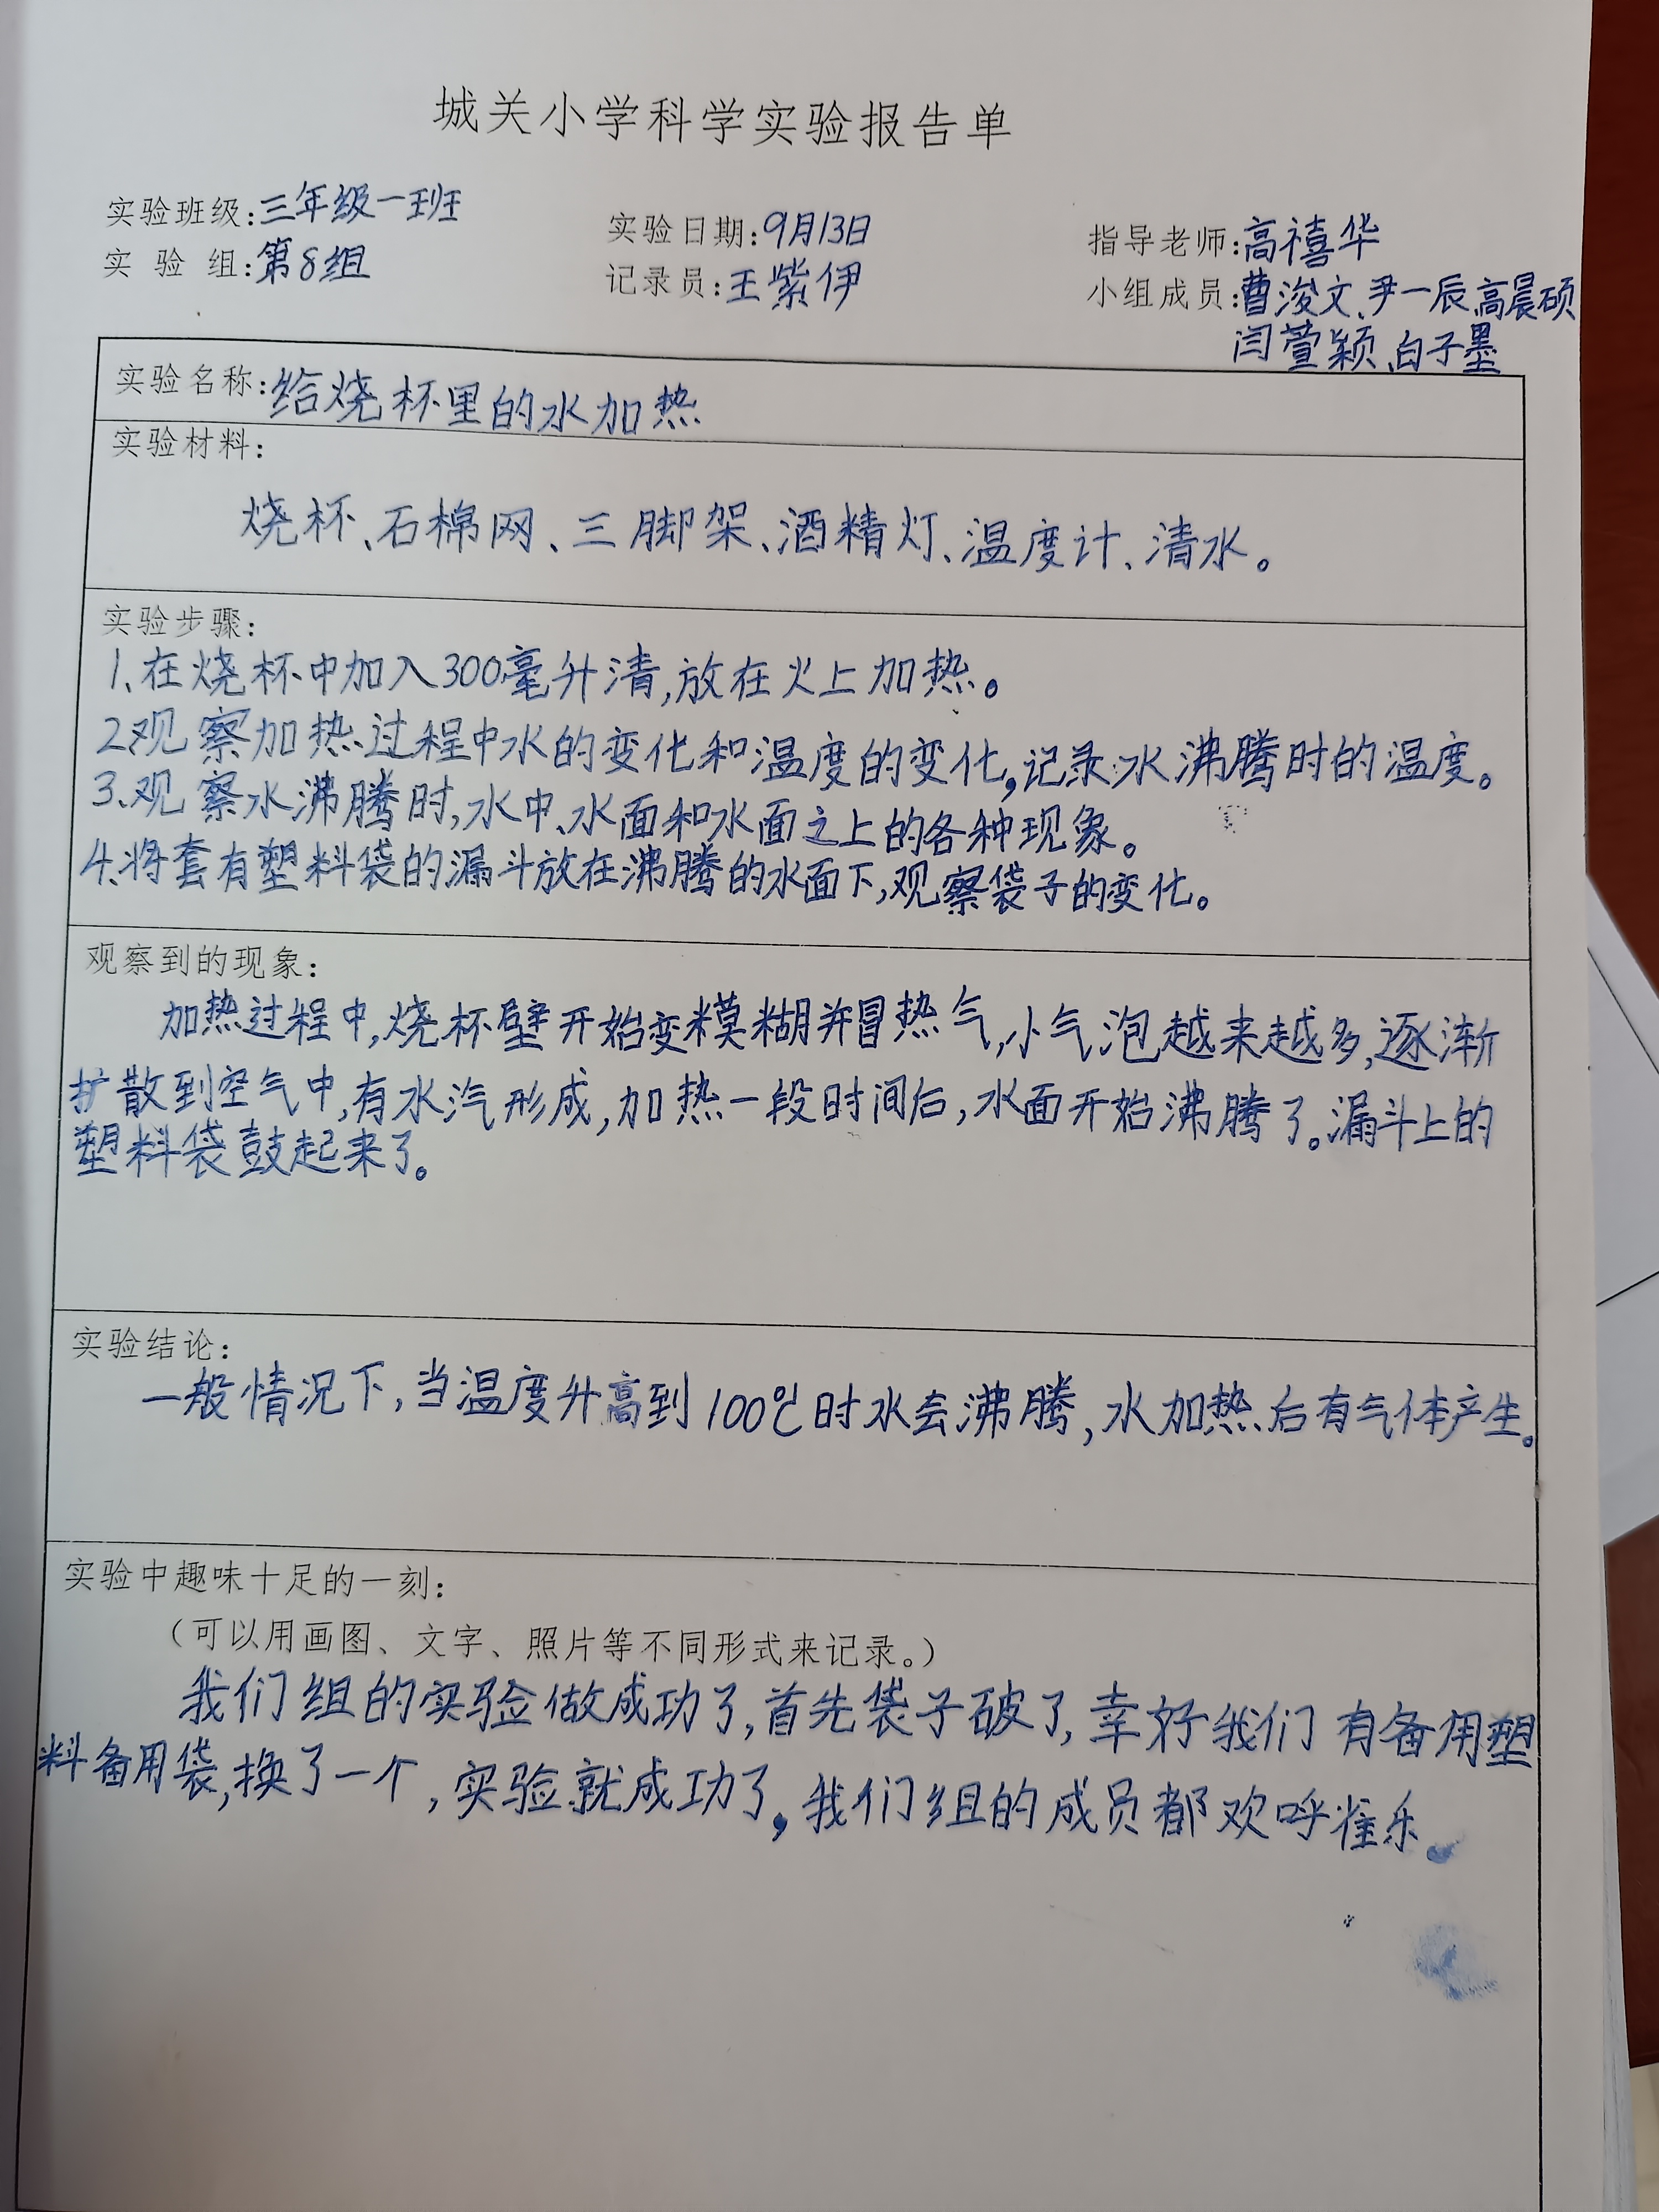 城关小学科学实验报告单
实验班级:三年级一班
实验日期:9月13日
指导老师:高禧华
实验组:第8组
记录员:王紫伊
小组成员:曹浚文、尹一辰、高晨硕
闫萱颖、白子墨
实验名称:给烧杯里的水加热
实验材料:
烧杯、石棉网、三脚架、酒精灯、温度计、清水。
实验步骤:
1、在烧杯中加入300毫升清,放在火上加热。
2、观察加热过程中水的变化和温度的变化,记录水沸腾时的温度。
3、观察水沸腾时,水中、水面和水面之上的各种现象。
4、将套有塑料袋的漏斗放在沸腾的水面下,观察袋子的变化。
观察到的现象:
加热过程中,烧杯壁开始变糢糊并冒热气,小气泡越来越多,逐渐
扩散到空气中,有水汽形成,加热一段时间后,水面开始沸腾了。漏斗上的
塑料袋鼓起来了。
实验结论:
一般情况下,当温度升高到100℃时水会沸腾,水加热后有气体产生。
实验中趣味十足的一刻:
(可以用画图、文字、照片等不同形式来记录。)
我们组的实验做成功了,首先袋子破了,幸好我们有备用塑
料备用袋,换了一个,实验就成功了,我们组的成员都欢呼雀乐。